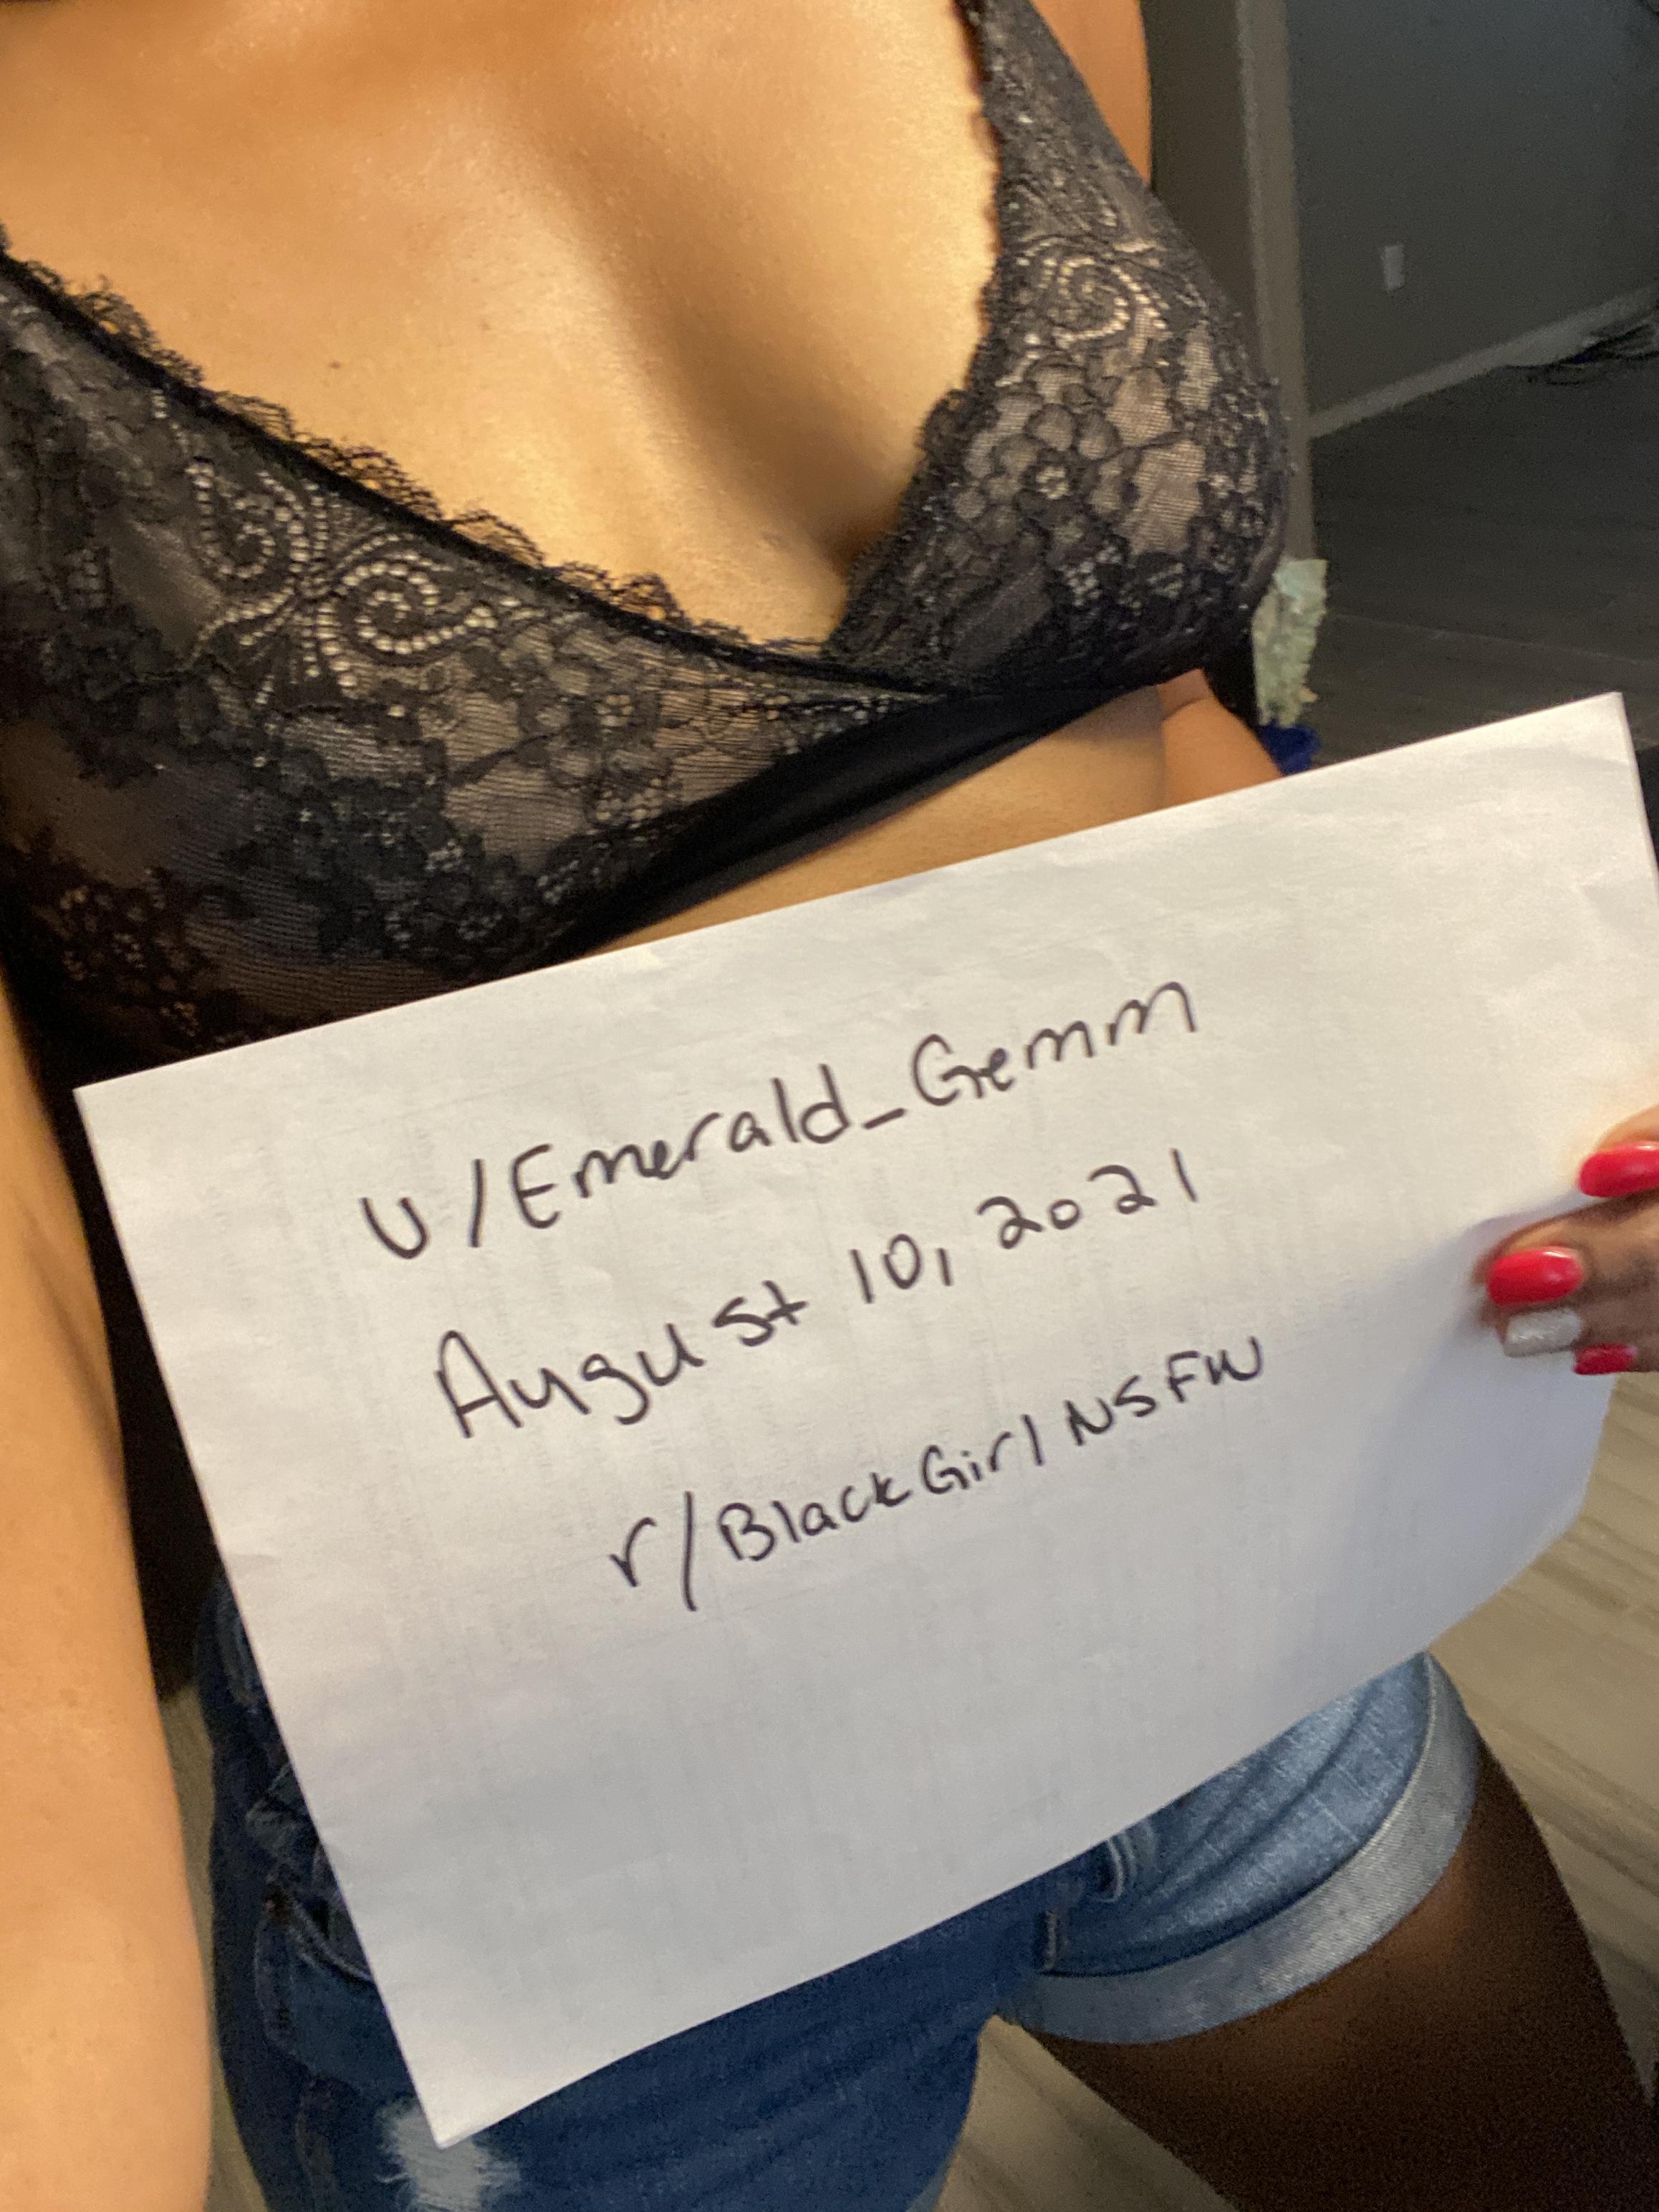 u/Emerald_Gemm
August 10, 2021
r/BlackGirlNSFW